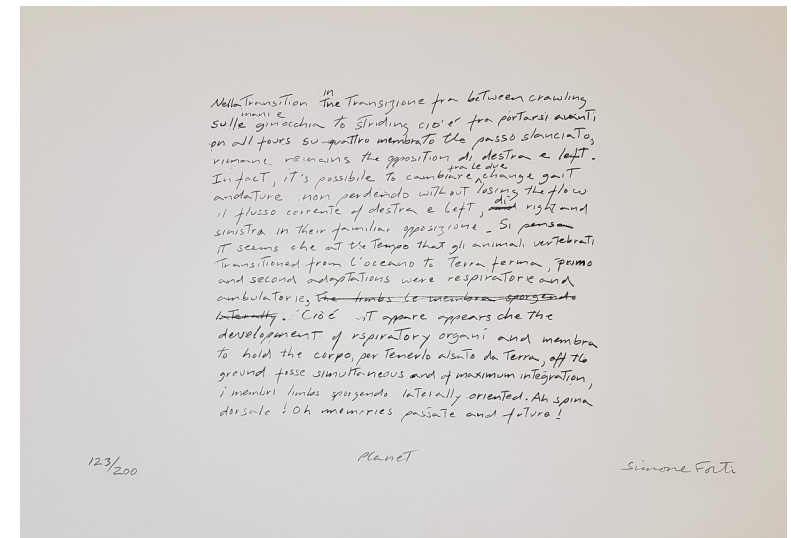 Nella Transition in the Transizione fra between crawling
sulle mani e ginocchia to striding cio'é fra portarsi avanti
on all fours su quattro membrato the passo slanciato,
rimane remains the opposition di destra e left.
In fact, it's possibile to cambiare fra le due change gait
andature non perdendo without losing the flow
il flusso corrente of destra e left, di right and
sinistra in their familiar opposizione. Si pensa
it seems che at the tempo that gli animali vertebrati
transitioned from l'oceano to terra ferma, primo
and second adaptations were respiratorie and
ambulatorie, the limbs le membra sporgendo
laterally. Ciò é it appare appears che the
development of rspiratory organi and membra
to hold the corpo, per tenerlo alsato da terra, off the
ground fosse simultaneous and of maximum integration,
i membri limbs sporgendo laterally oriented. Ah spina
dorsale! Oh memories passate and future!
123/200
Planet
Simone Forti